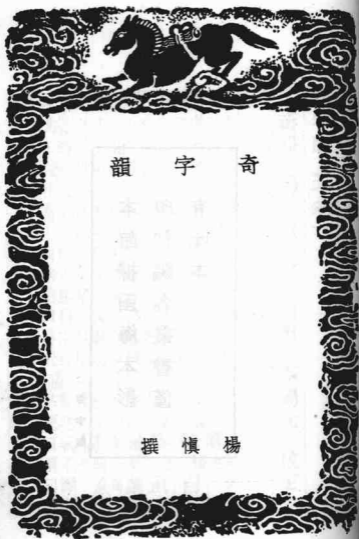 奇字韻
楊慎撰